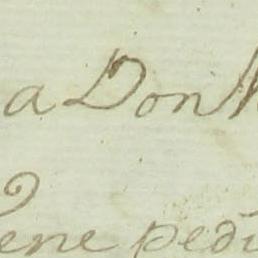 a Don
ene pedi